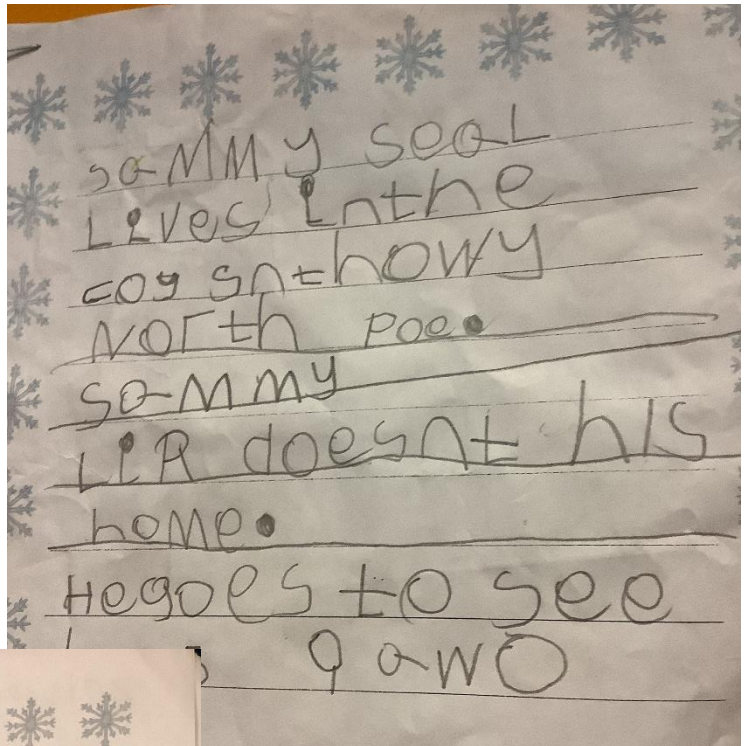 sammy seaL
Lives inthe
coy snthowy
North poe.
sammy
LiR doesnt his
home.
Hegoes to see
qawo